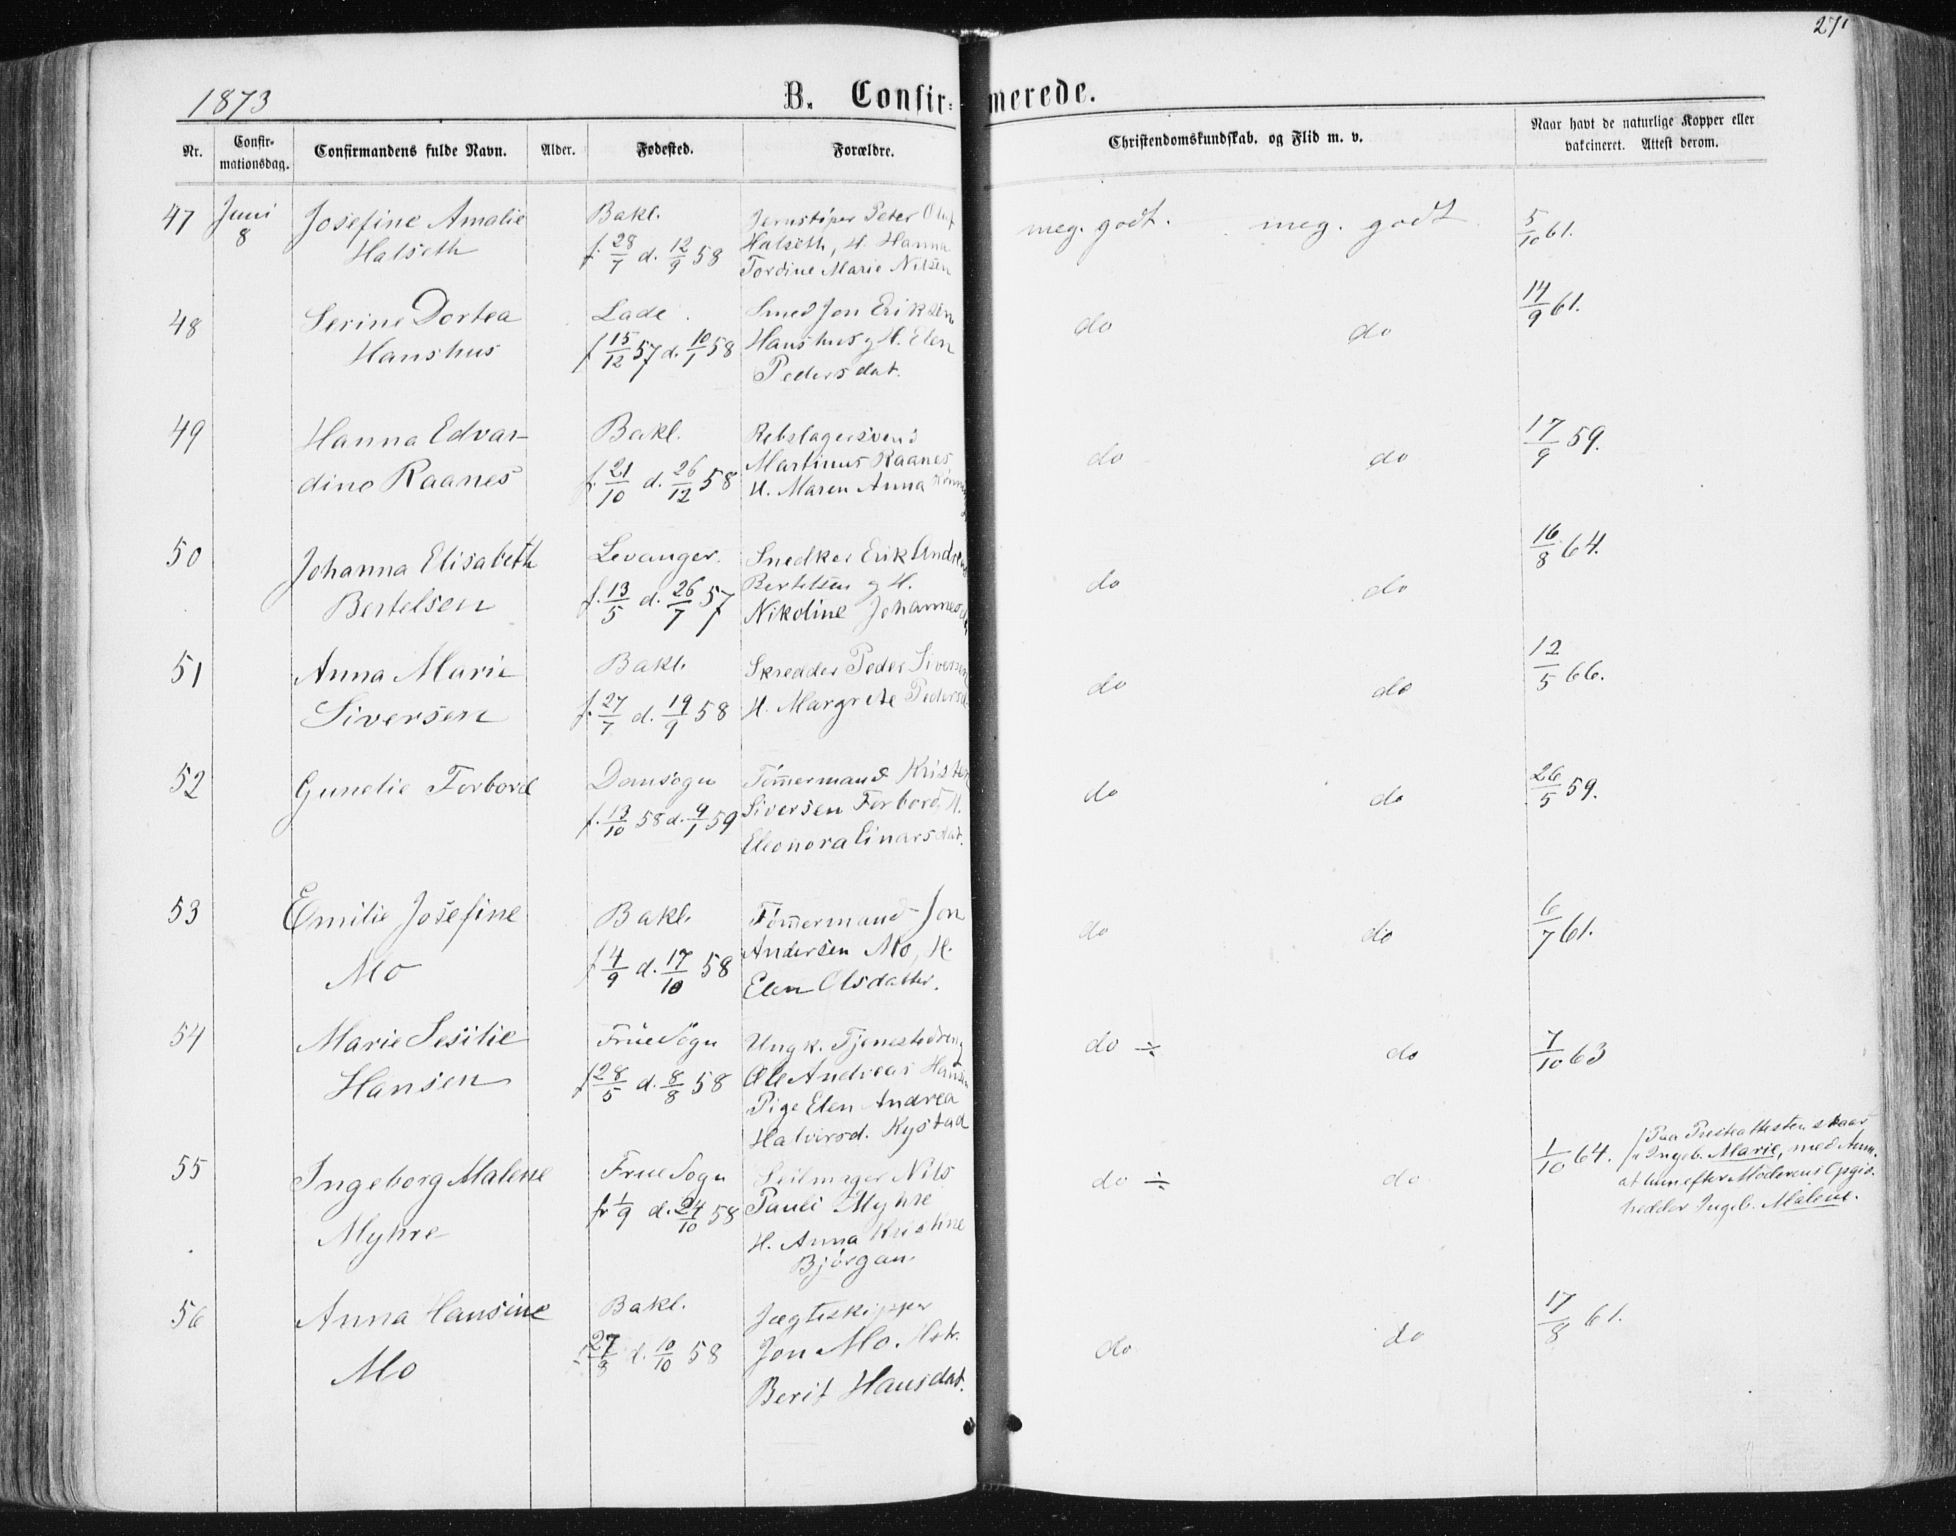 271
1873
B. Confir-
merede.
Nr.
Confir-
mationsdag.
Confirmandens fulde Navn.
Alder.
Fødested.
Forældre.
Christendomskundskab. og Flid m. v.
Naar havt de naturlige Kopper eller
vakcineret. Attest derom.
47 Juni Josefine Amalie Bakl. Jernstøper Peter Oluf meg. godt. meg. godt 5/10 61.
8 Halseth f. 28/7 d. 12/9 58 Halseth, H. Hanna
Tordine Marie Nilsen
48 Serine Dortea Lade. Smed Jon Eriksen do do 14/9 61.
Hanshus f 15/12 57 d. 10/1 58 Hanshus og H. Elen
Pedersdat.
49 Hanna Edvar- Bakl. Rebslagersvend do do 17/9 59.
dine Raanes f. 21/10 d. 26/12 58 Martinus Raanes
H. Maren Anna
50 Johanna Elisabeth Levanger. Snedker Erik Andreas do do 16/8 64.
Bertelsen f. 13/5 d. 26/7 57 Bertelsen og H.
Nikoline Johannesd
51 Anna Marie Bakl. Skredder Peder Siversen do do 12/5 66.
Siversen f. 27/7 d. 19/9 58 H. Margrete Pedersd
52 Gunelie Forbord Domsogn Tømmermand Kristen do do 26/5 59.
f. 13/10 58 d. 9/1 59 Siversen Forbord, H.
Eleonora Einarsdat.
53 Emilie Josefine Bakl. Tømmermand Jon do do 6/7 61.
Mo f 4/9 d. 17/10 58 Andersen Mo, H.
Elen Olsdatter.
54 Marie Sesilie Frue Sogn Ungk. Tjenestedreng do ÷ do 7/10 63
Hansen f 28/5 d. 8/8 58 Ole Andreas Hansen
Pige Elen Andrea
Halvorsd. Rystad
55 Ingeborg Malene Frue Sogn Seilmager Nils do ÷ do 1/10 64.
Myhre f. 1/9 d. 24/10 58 Pauli Myhre
H. Anna Kristine
Bjørgan
Paa Presteattesten staar
Ingeb. Marie, med Anm.
at hun efter Moderens Opgiv.
hedder Ingeb. Malene.
56 Anna Hansine Bakl. Jægteskipper do do 17/8 61.
Mo 27/8 d. 10/10 58 Jon Mo. Hstr.
Berit Hansdat.